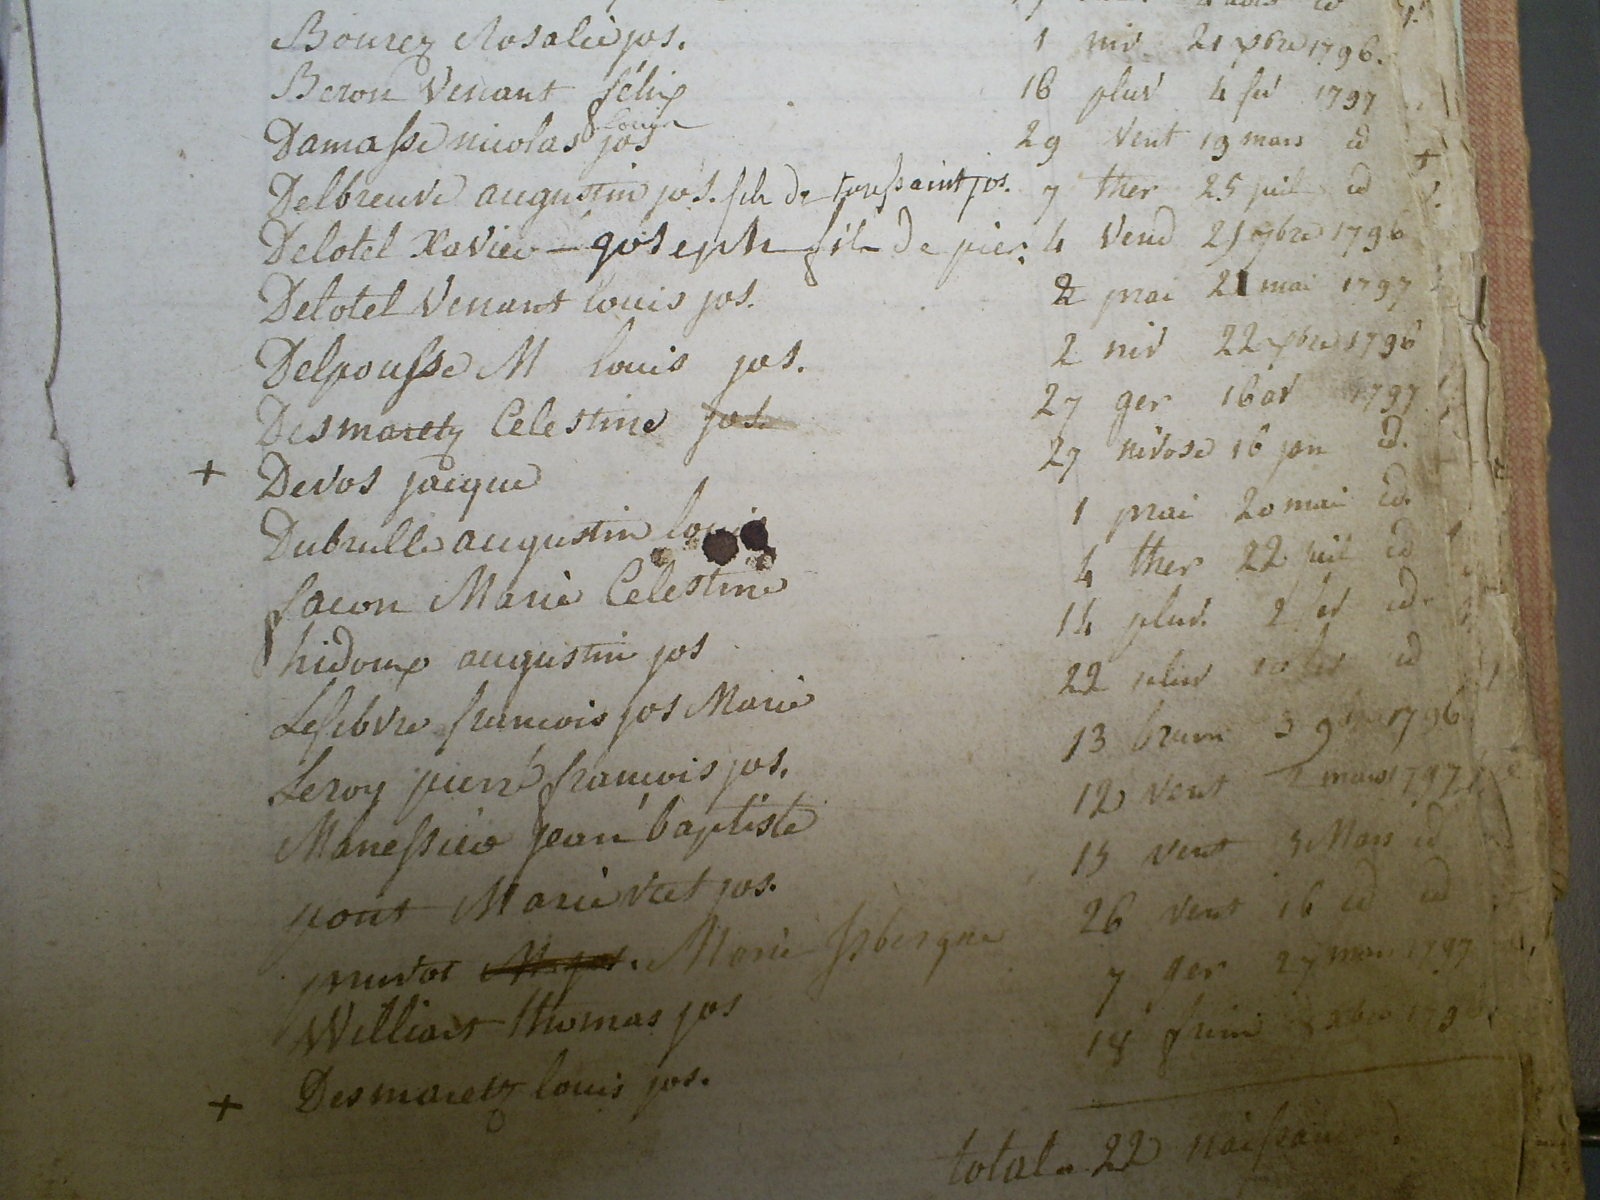 Bourez Rosalie jos. 1 niv 21 xbre 1796.
Beron Venant félix 16 pluv 4 fév 1797
louis
Damasse nicolas jos 29 vent 19 mars id
Delbreuve augustin jos. fils de toussaint jos. 7 ther 25 juil id
Delotel Xavier joseph fils de pier. 4 vend 25 7bre 1796
Delotel Venant louis jos. 2 prai 21 mai 1797
Delpousse M louis jos. 2 niv 22 xbre 1796
Desmaretz Celestine jos. 27 ger 16 av 1797
+ Devos jacque 27 nivose 16 jan id.
Dubrulle augustin louis 1 prai 20 mai id.
facon Marie Celestine 4 ther 22 juil id
hidoux augustin jos 14 pluv. 2 fev id.
Lefebvre francois jos Marie 22 pluv 10 fev id
Leroy pierre francois jos. 13 brum 3 9bre 1796
Manessier jean baptiste 12 vent 2 mars 1797
pont Marie Vict jos. 15 vent 5 Mars id
pruvot M. jos. Marie Isbergue 26 vent 16 id id
Williart thomas jos 7 ger 27 mars 1797
+ Desmaretz louis jos. 18 frim 8 xbre 1796
total 22 naissances